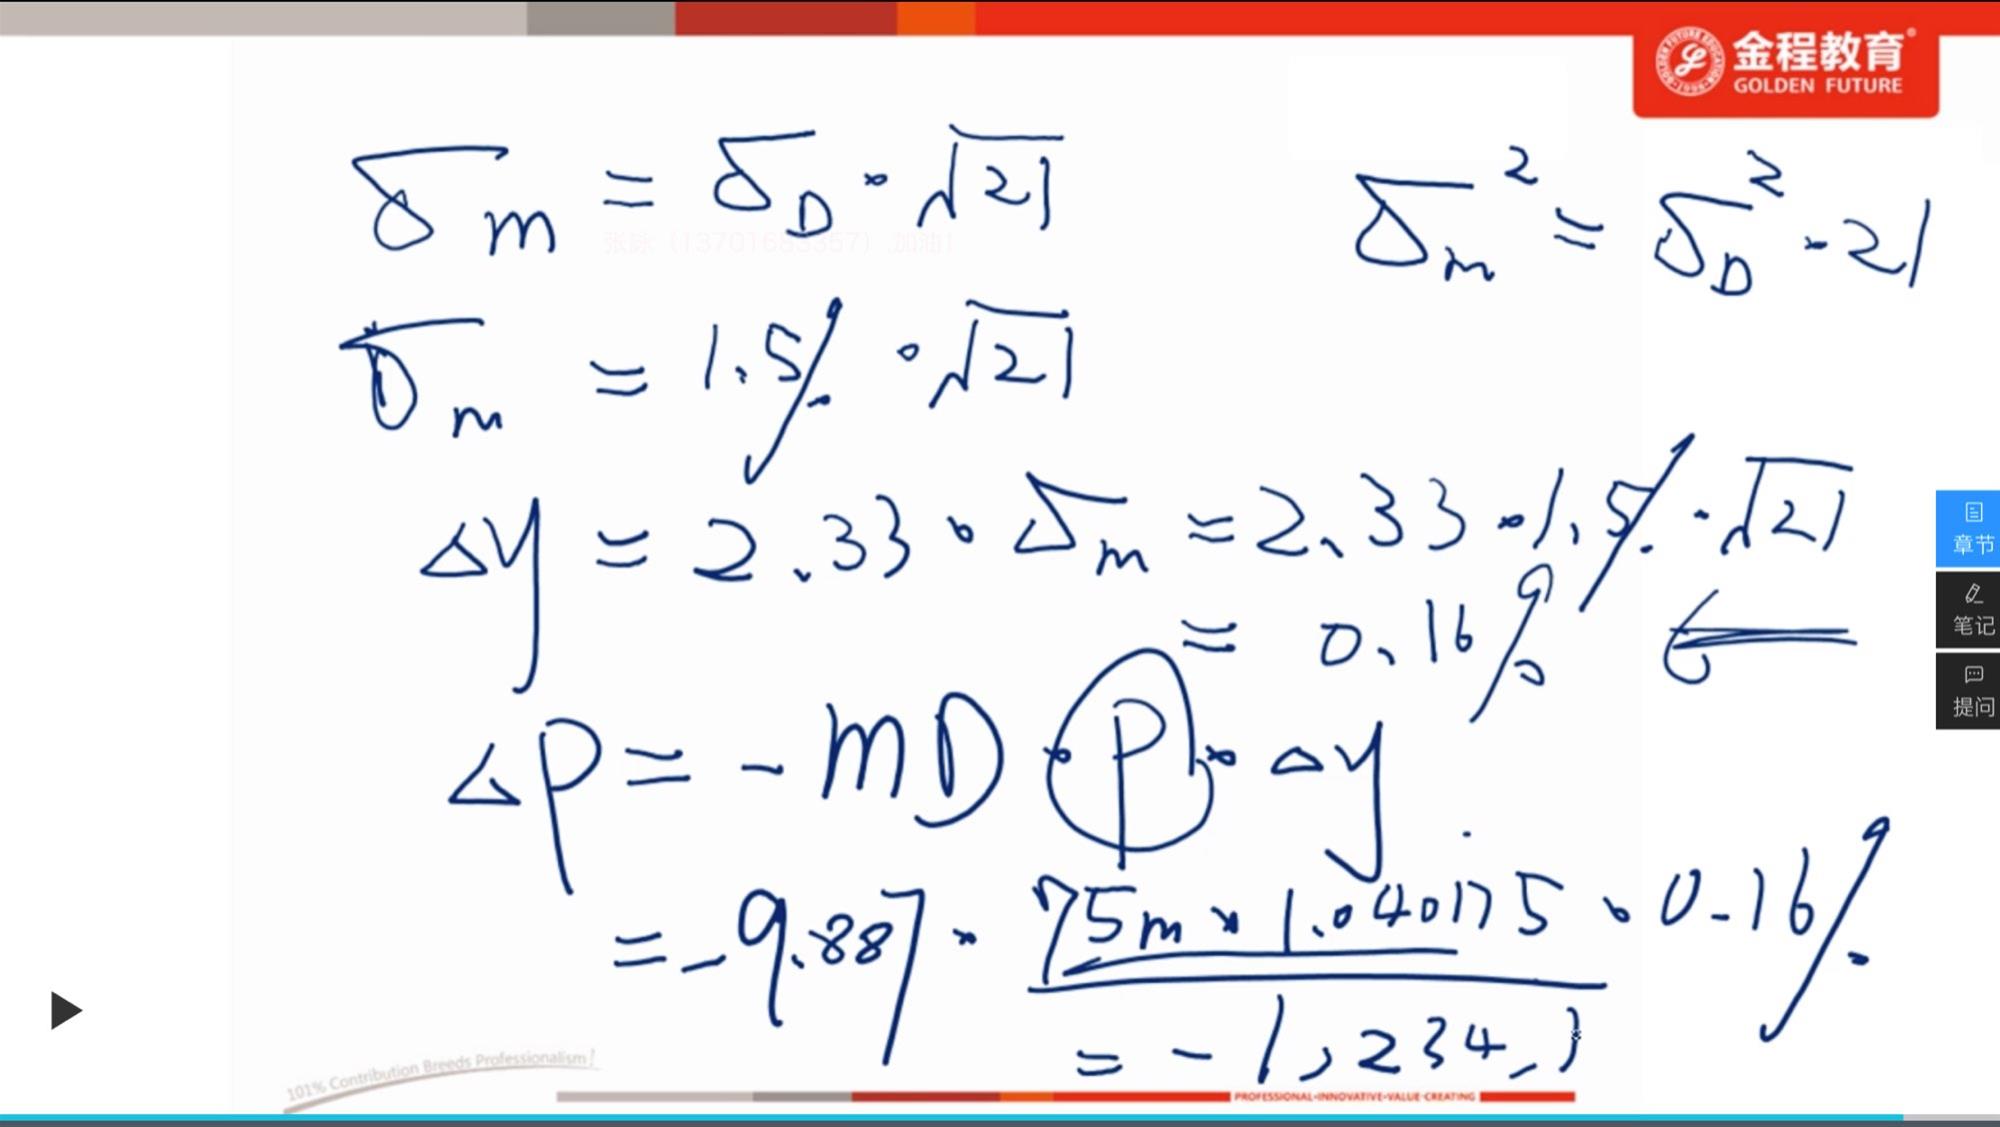 金程教育®
GOLDEN FUTURE
σm = σD · √21
σm² = σD² · 21
张咏（13701683357）,加油！
σm = 1.5% · √21
Δy = 2.33 · σm = 2.33 · 1.5% · √21
= 0.16%
章节
笔记
提问
ΔP = -MD · P · Δy
= -9.887 · 75m × 1.040175 · 0.16%
= -1,234,1
101% Contribution Breeds Professionalism!
PROFESSIONAL·INNOVATIVE·VALUE-CREATING